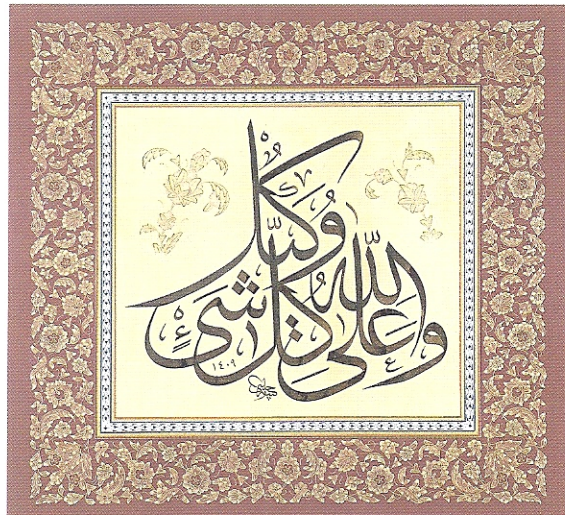 والله على كل شيء وكيل
١٤٠٩